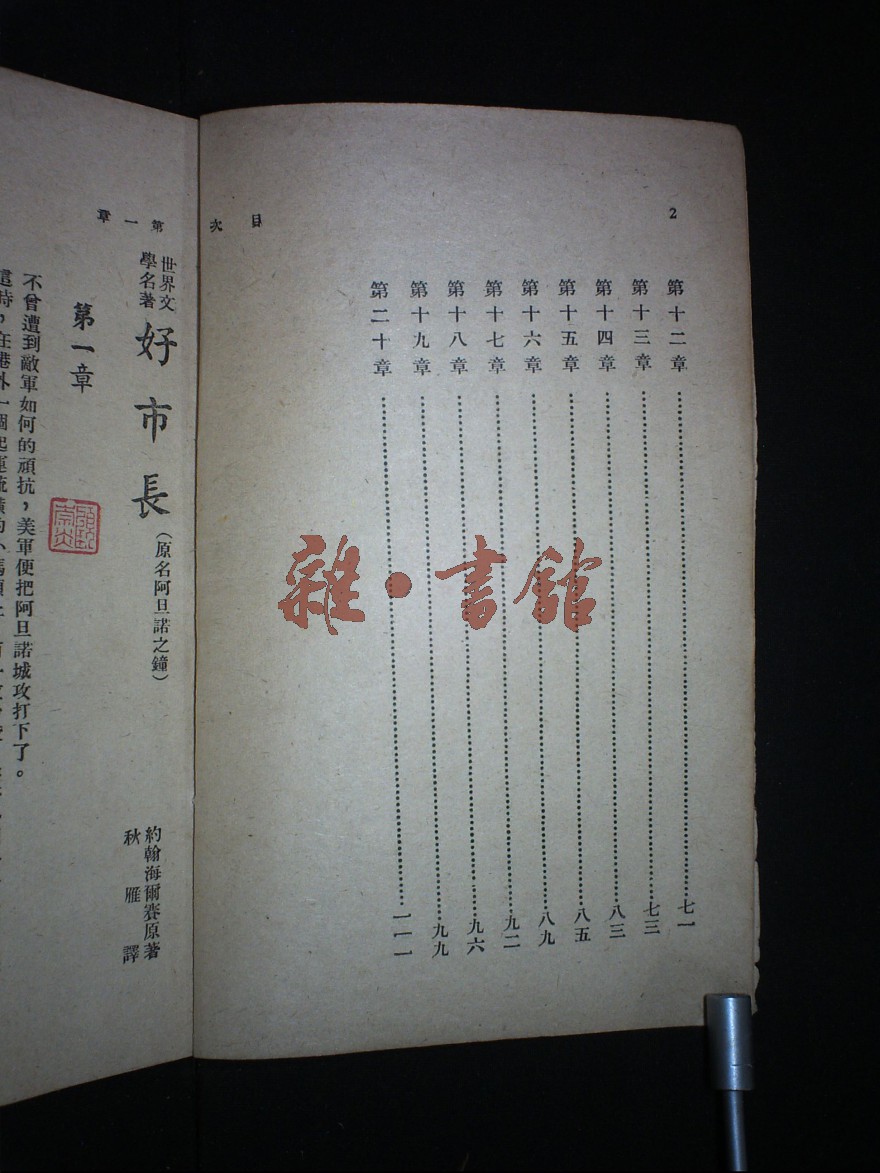 2
目次
第十二章……七一
第十三章……七三
第十四章……八三
第十五章……八五
第十六章……八九
第十七章……九二
第十八章……九六
第十九章……九九
第二十章……一一一
雜·書館
第一章
世界文
學名著
好市長
（原名阿旦諾之鐘）
約翰海爾賽原著
秋雁譯
第一章
不曾遭到敵軍如何的頑抗，美軍便把阿旦諾城攻打下了。
這時，在港外一個起運硫磺的小碼頭